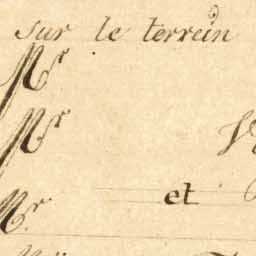 sur le terrein
Mr
Mr
Mr. et